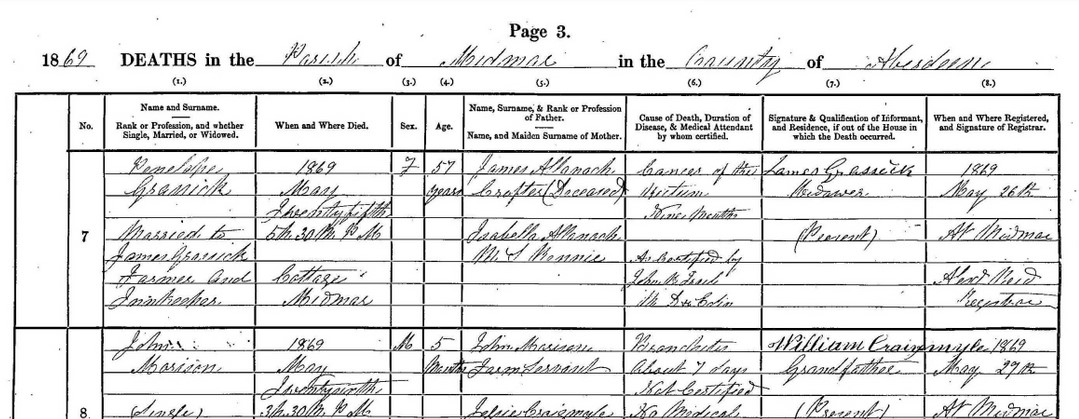 Page 3.
1869 DEATHS in the Parish of Midmar in the County of Aberdeen
(1.) (2.) (3.) (4.) (5.) (6.) (7.) (8.)
No.
Name and Surname.
Rank or Profession, and whether
Single, Married, or Widowed.
When and Where Died.
Sex.
Age.
Name, Surname, & Rank or Profession
of Father.
Name, and Maiden Surname of Mother.
Cause of Death, Duration of
Disease, & Medical Attendant
by whom certified.
Signature & Qualification of Informant,
and Residence, if out of the House in
which the Death occurred.
When and Where Registered,
and Signature of Registrar.
7
Penelope
Grassick
Married to
James Grassick
Farmer and
Innkeeper
1869
May
Twentyfifth
5h. 30m. P M
Cottage
Midmar
F
57
years
James Attanach
Crofter (Deceased)
Isabella Attanach
M. S. Rennie
Cancer of the
Rectum
Nine Months
As Certified by
John
James Grassick
Widower
(Present)
1869
May 26th
At Midmar
Alexd Reid
Registrar
8
John
Morison
(Single)
1869
May
3h. 30m. P M
M
5
Months
John Morison
Farm Servant
Craigmyle
Bronchitis
About 7 days
Not Certified
No Medical
William Craigmyle
Grandfather
(Present)
1869
May 29th
At Midmar